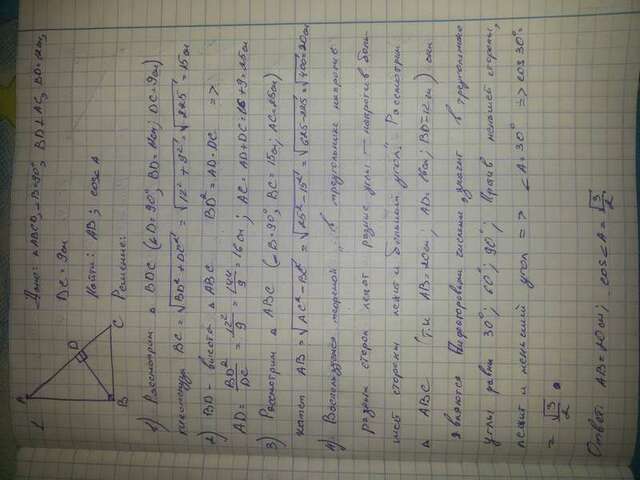 1.
A
D
B
C
Дано: △ABCD, ∠B=90°, BD⊥AC, BD=12см,
DC=9см
Найти: AB; cos∠A
Решение:
1) Рассмотрим △ BDC (∠D=90°, BD=12см; DC=9см)
гипотенуза BC = √BD²+DC² = √12²+9² = √225 = 15см
2) BD - высота △ABC BD² = AD·DC =>
AD = BD²/DC = 12²/9 = 144/9 = 16см; AC = AD+DC = 16+9 = 25см
3) Рассмотрим △ ABC (∠B=90°, BC=15см, AC=25см)
катет AB = √AC²-BC² = √25²-15² = √625-225 = √400 = 20см
4) Воспользуемся теоремой „в треугольнике напротив
равных сторон лежат равные углы – напротив боль
шей стороны лежит и больший угол". Рассмотрим
△ ABC (т.к AB=20см; AD=16см; BD=12см) они
являются в треугольнике
углы равны 30°; 60°; 90°; меньшей стороны,
лежит и меньший угол => ∠A=30° => cos30°=
= √3/2.
Ответ: AB=20см; cos∠A = √3/2